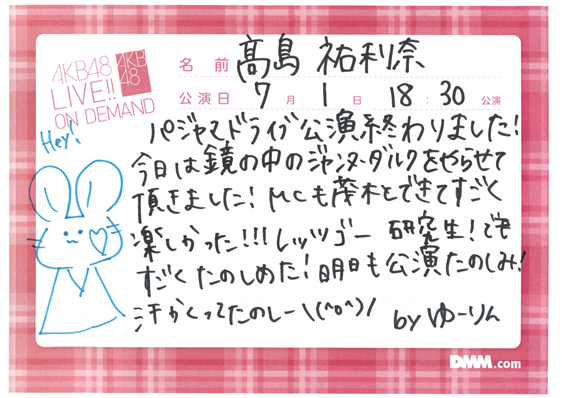 AKB48
LIVE!!
ON DEMAND
AKB
48
名前 髙島 祐利奈
公演日 7月 1日 18:30公演
Hey!
パジャマドライブ公演終わりました!
今日は鏡の中のジャンヌ・ダルクをやらせて
頂きました! MCも茂木とできてすごく
楽しかった!!! レッツゴー研究生!でも
すごくたのしめた!明日も公演たのしみ!
汗かくってたのしー\(^o^)/
by ゆーりん
DMM.com